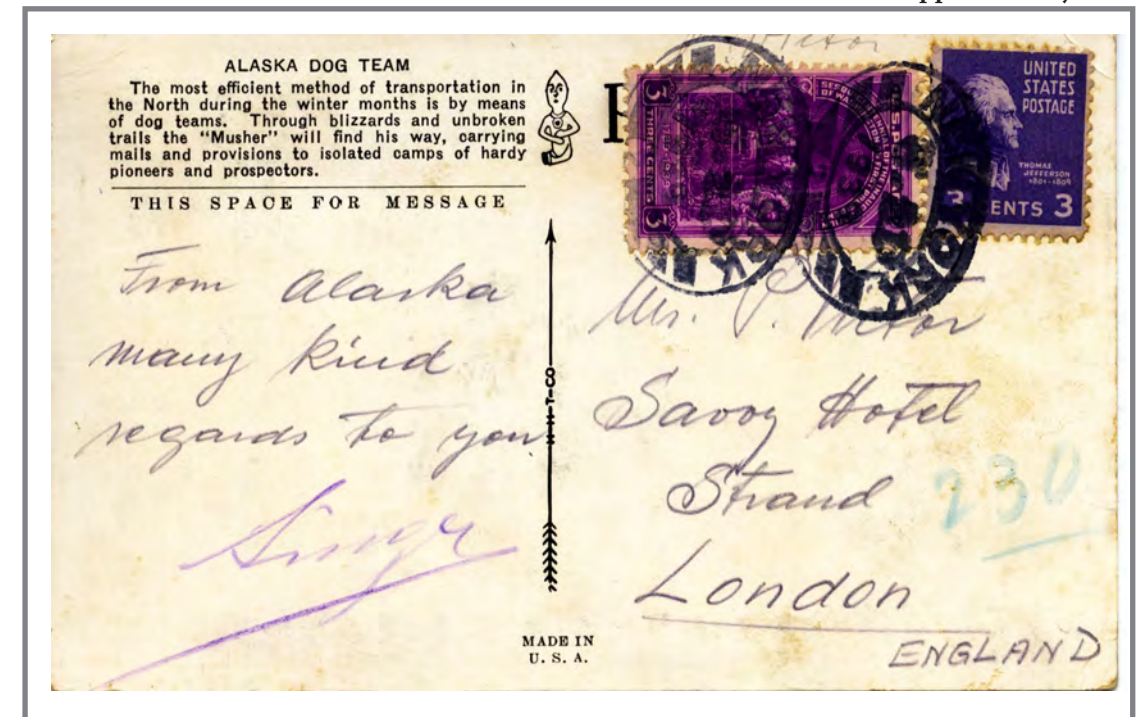 ALASKA DOG TEAM
The most efficient method of transportation in
the North during the winter months is by means
of dog teams. Through blizzards and unbroken
trails the "Musher" will find his way, carrying
mails and provisions to isolated camps of hardy
pioneers and prospectors.
THIS SPACE FOR MESSAGE
From Alaska
many kind
regards to you
MADE IN
U. S. A.
UNITED
STATES
POSTAGE
THOMAS
JEFFERSON
1801-1809
3 CENTS 3
3 THREE CENTS 3
Savoy Hotel
Strand
London
ENGLAND
230